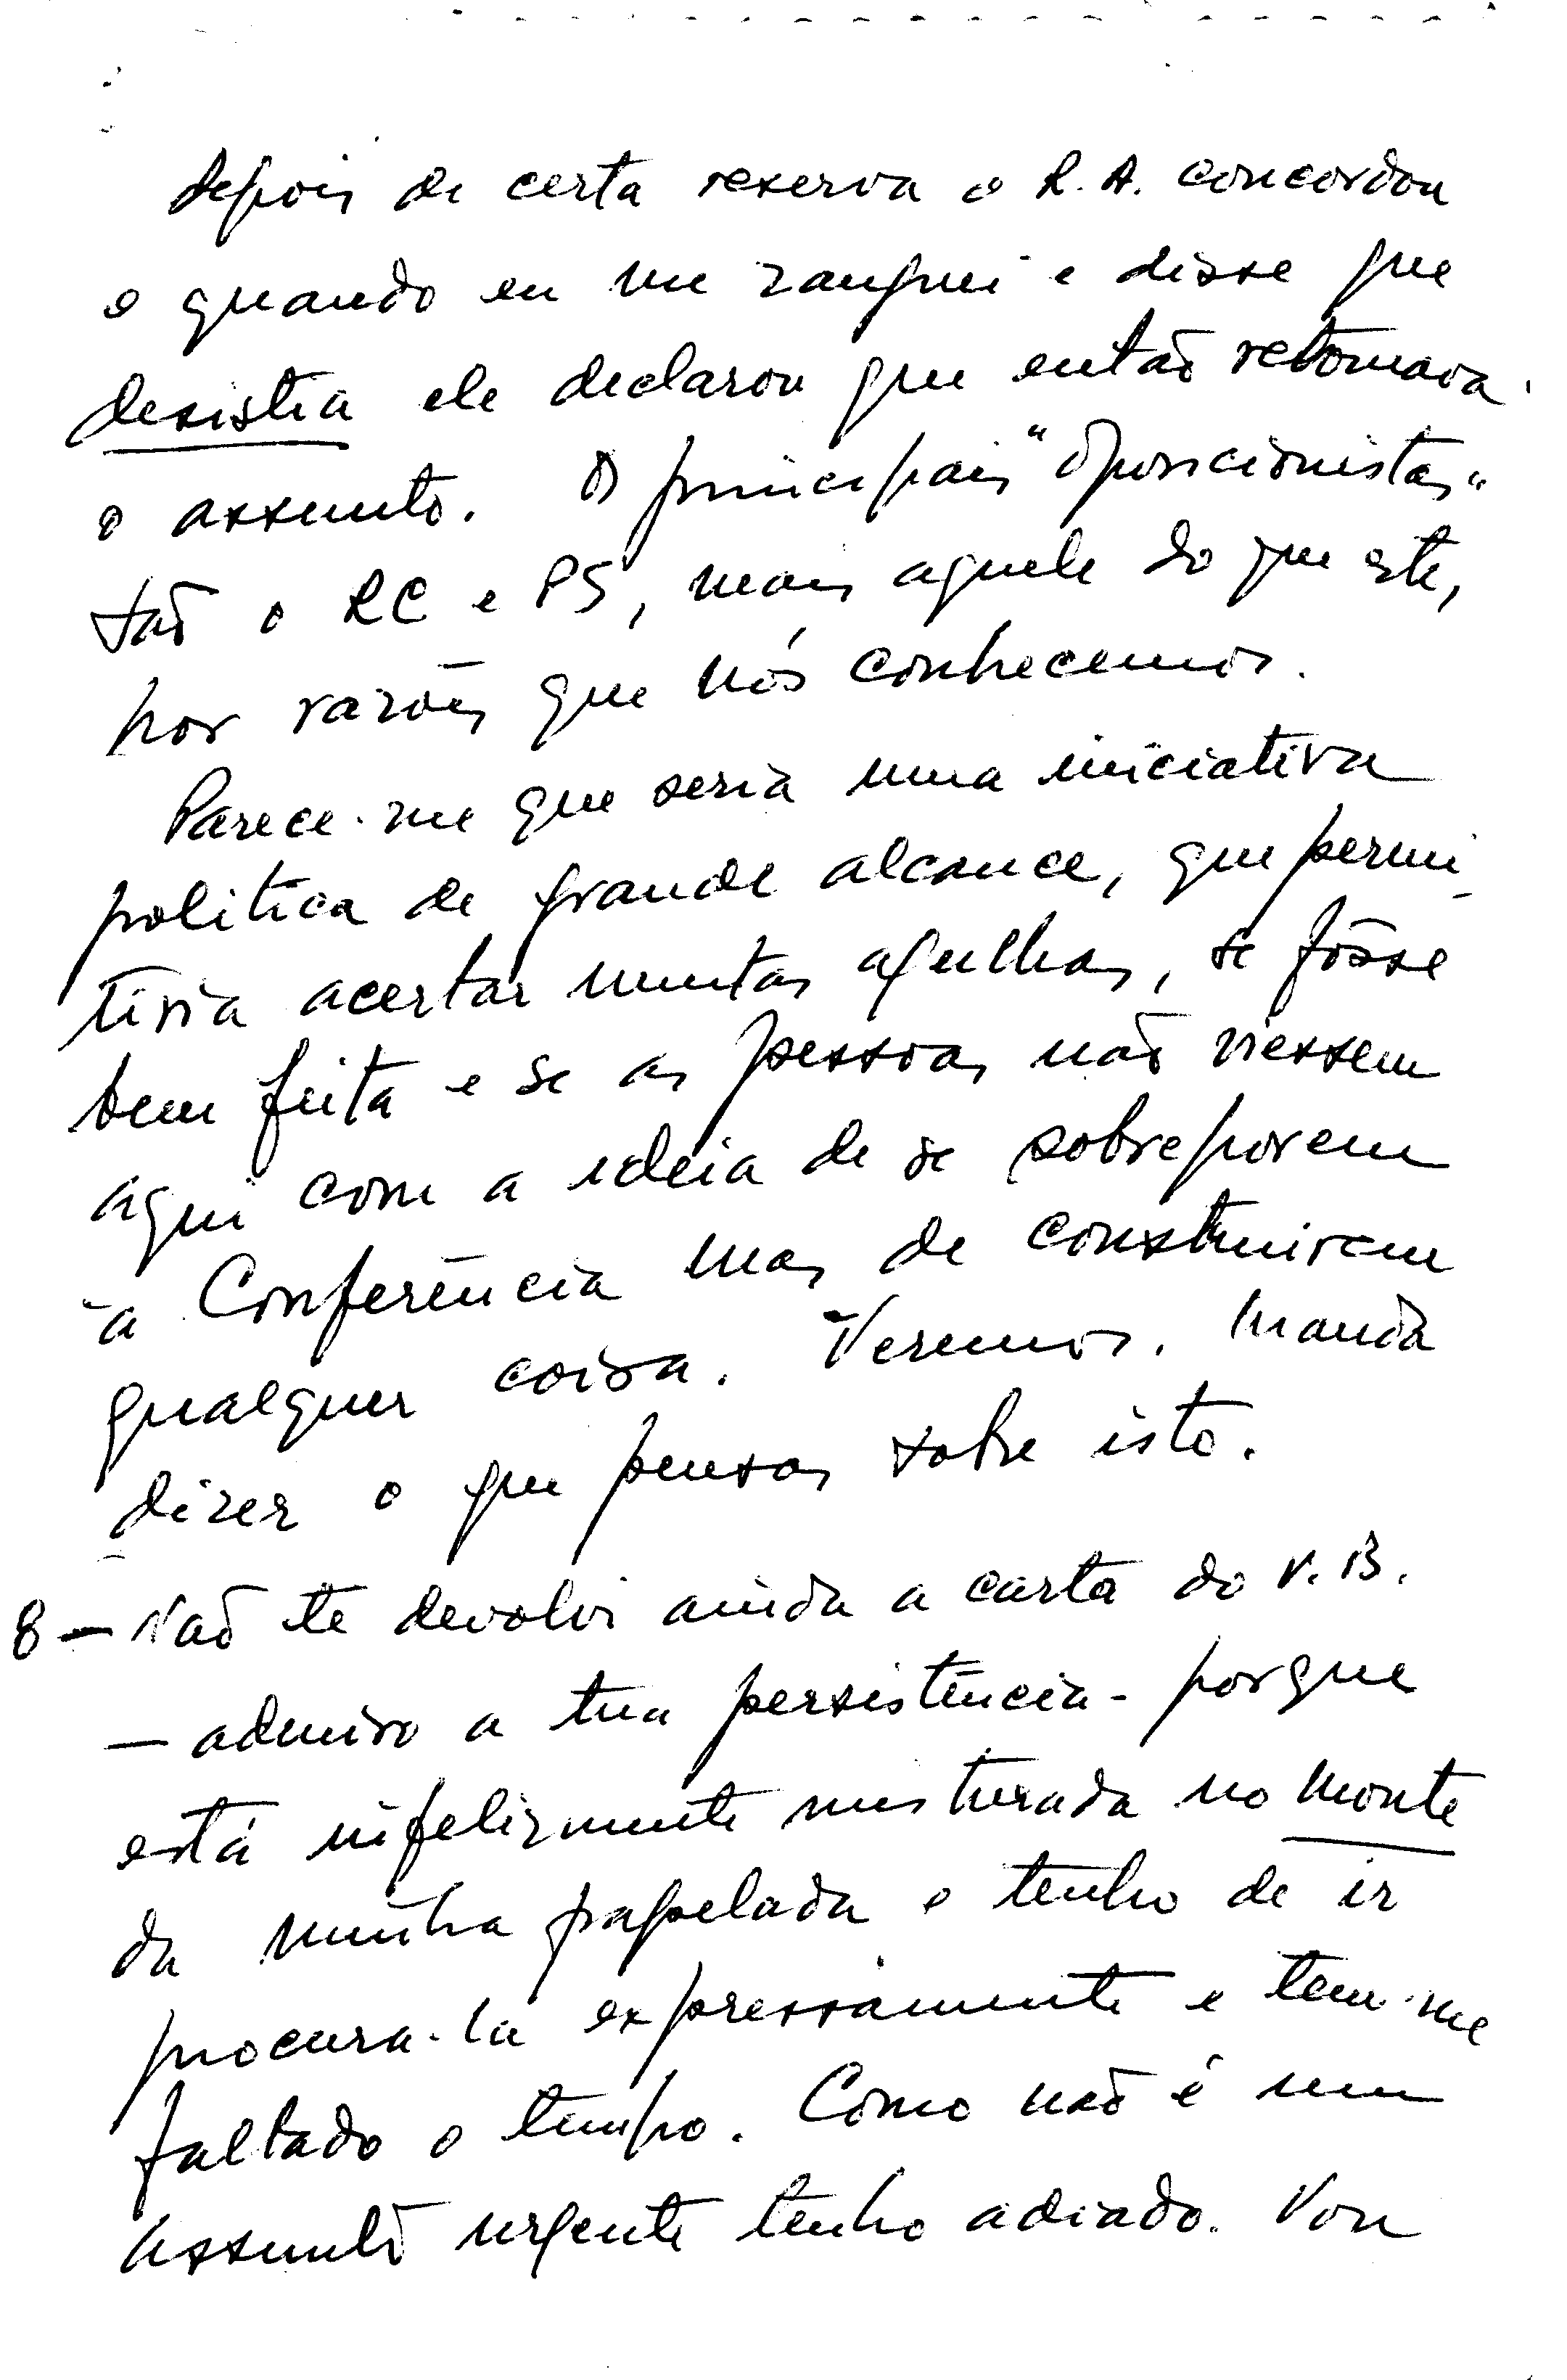 depois de certa reserva o R.A. concordou
e quando eu me zanguei e disse que
desistia ele declarou que então retomava
o assunto. Os principais "oposicionistas"
são o RC e PS, mais aquele do que este,
por razões que nós conhecemos.
Parece-me que seria uma iniciativa
política de grande alcance, que permi-
tiria acertar muitas agulhas, se fôsse
bem feita e se as pessoas não viessem
aqui com a ideia de se sobreporem
à Conferência mas de construirem
qualquer coisa. Veremos. Manda
dizer o que pensas sobre isto.
8 – Não te devolvi ainda a carta do V.B.
– admiro a tua persistência – porque
está infelizmente misturada no monte
da minha papelada e tenho de ir
procura-la expressamente e tem-me
faltado o tempo. Como não é um
assunto urgente tenho adiado. Vou